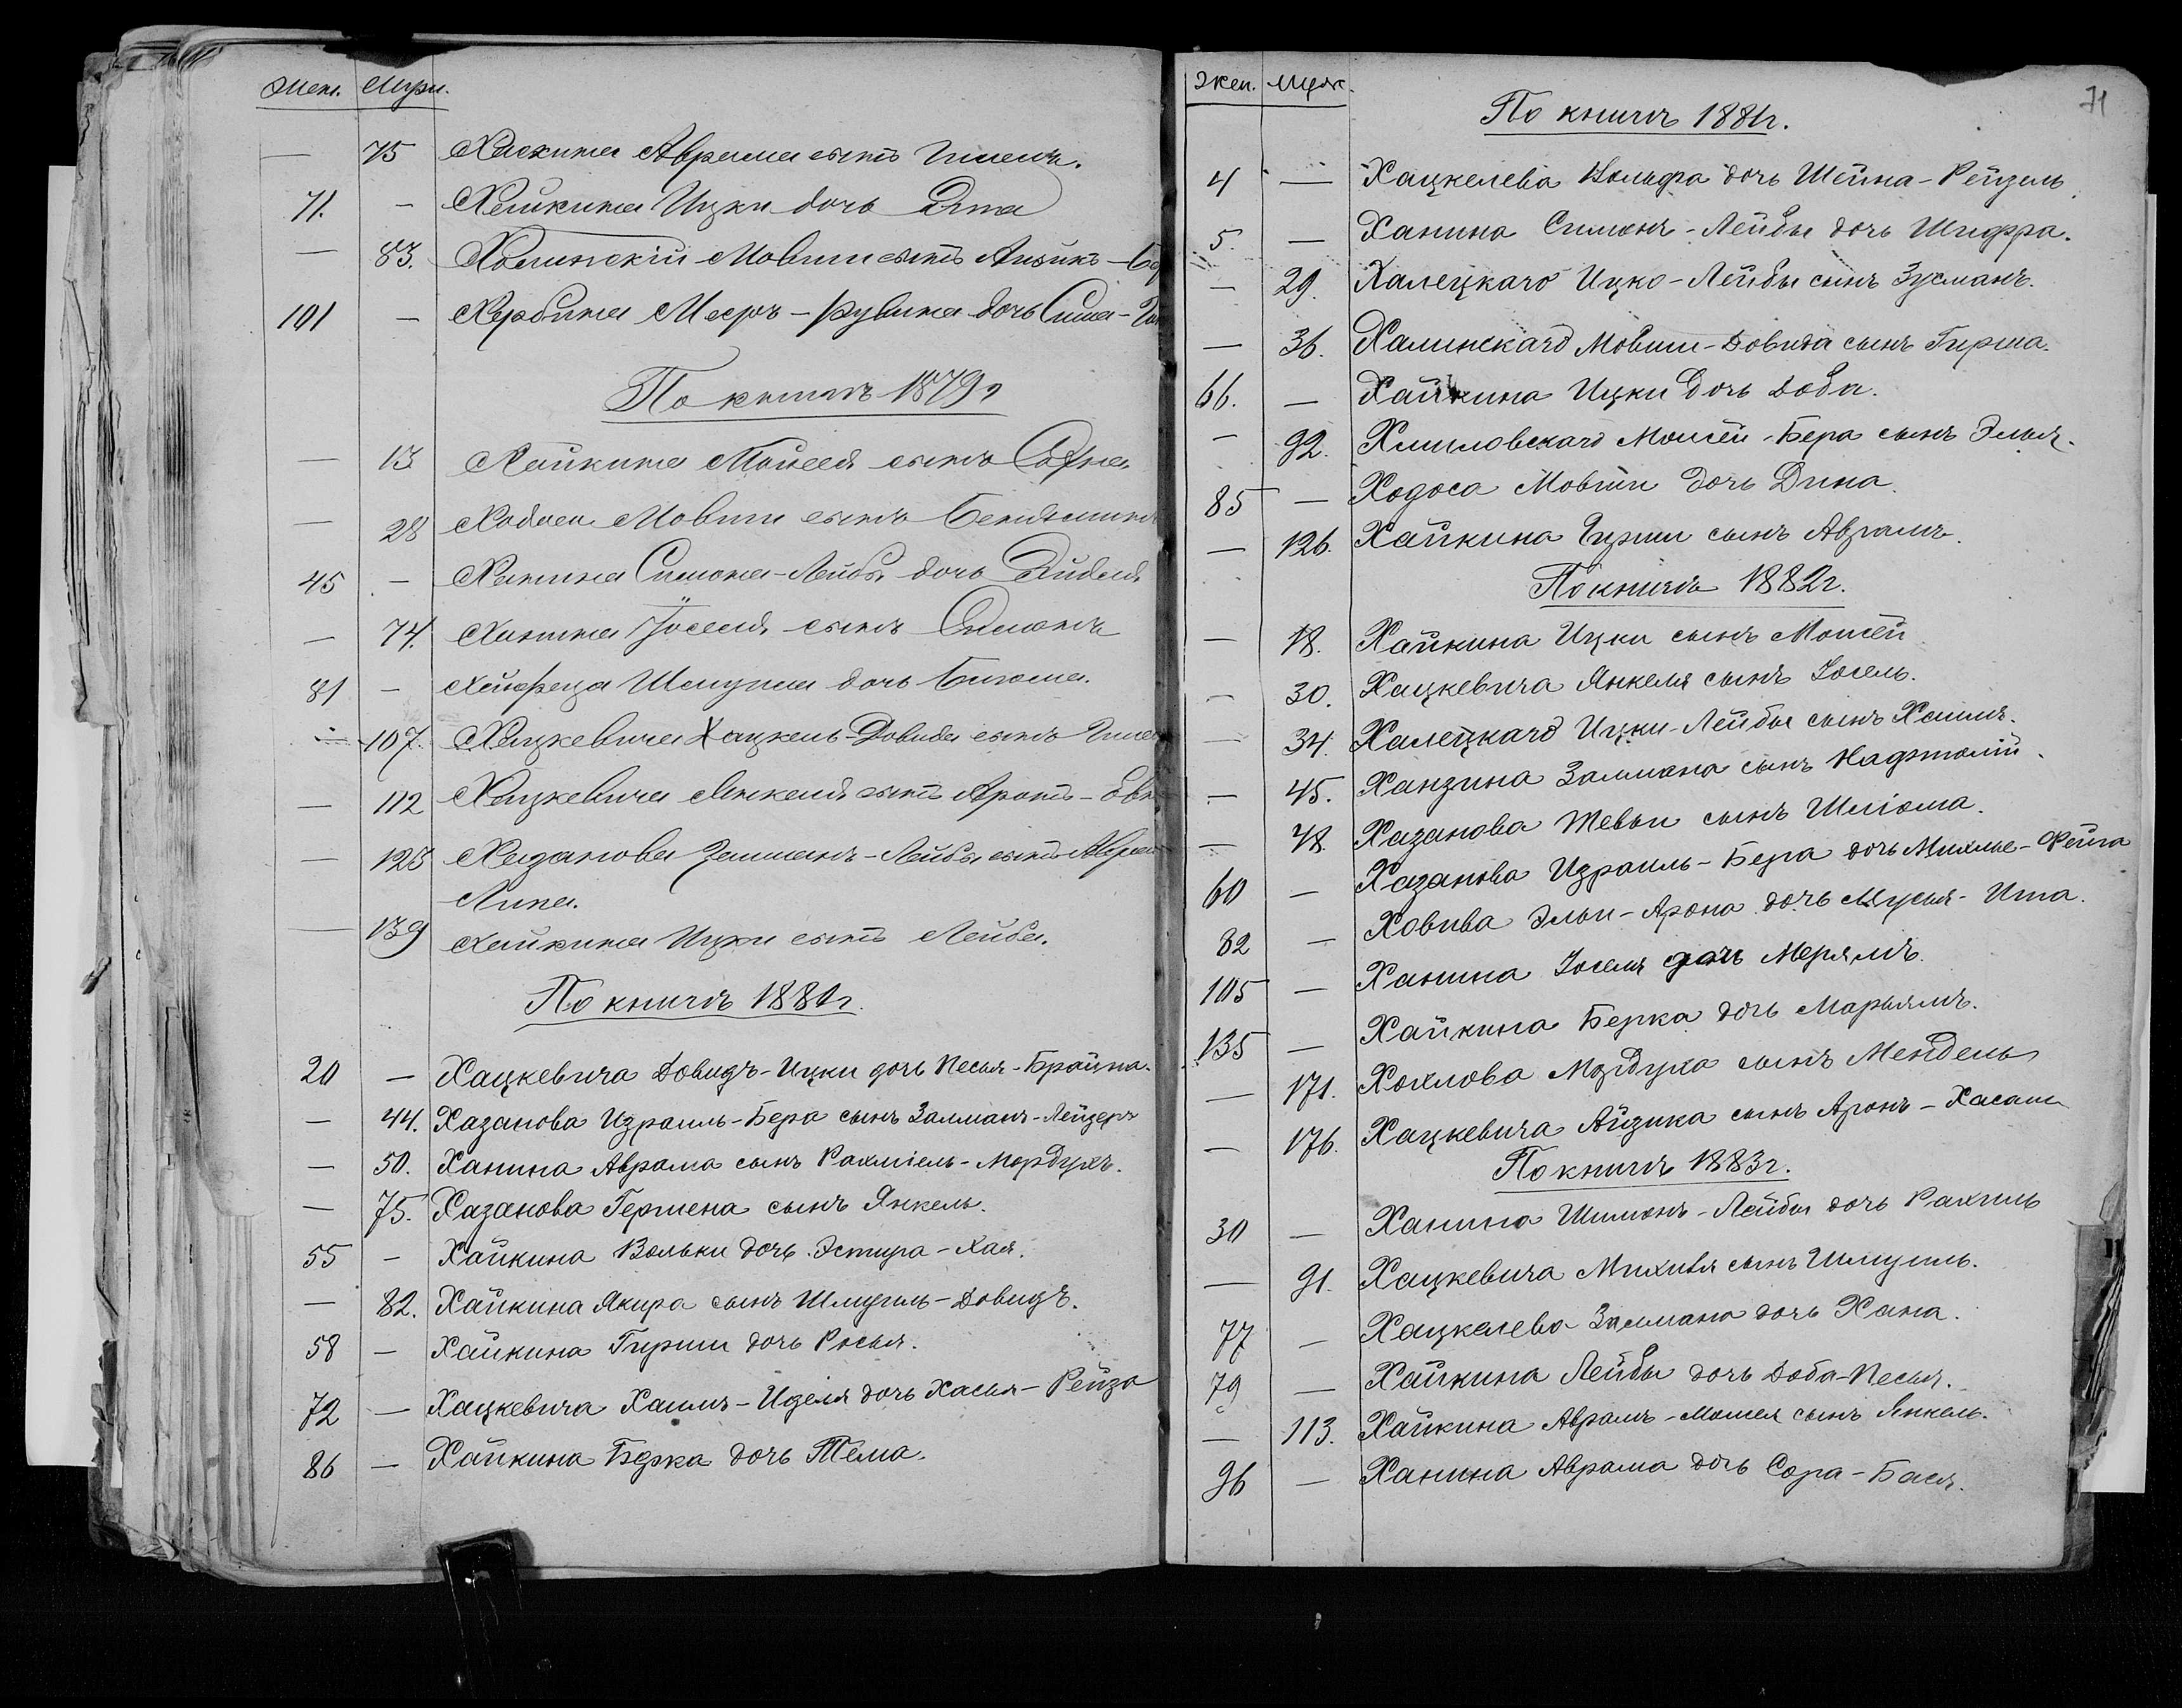 Жен. Муж.
— 75 Хаскина Аврама сынъ
71. — Хайкина Ицки дочь Эта
— 83. Холинскій Мовши сынъ Айзикъ-
101 — Хурбина Мееръ-Рувина дочь Сима-
По книгѣ 1879г
— 13 Хайкина Мойсея сынъ
— 28 Ходоса Мовши сынъ Беньямин
45 — Ханина Симона-Лейбы дочь Эйдля
— 74. Ханина Іоселя сынъ Симонъ
81 — Хейфеца Шмуила дочь Блюма.
— 107. Хацкевича Хацкель-Довида сынъ
— 112 Хацкевича Янкеля сынъ Аронъ-
— 125 Хазанова Залманъ-Лейбы сынъ Авра
Липа.
— 139 Хайкина Ицки сынъ Лейба.
По книгѣ 1880г.
20 — Хацкевича Довидъ-Ицки дочь Песья-Брайна.
— 44. Хазанова Израиль-Бера сынъ Залманъ-Лейзеръ
— 50. Ханина Аврама сынъ Рахміель-Мордухъ.
— 75. Хазанова Гершена сынъ Янкель.
55 — Хайкина Вольки дочь Эстира-Хая.
— 82. Хайкина Якира сынъ Шмуиль-Довидъ.
58 — Хайкина Гирши дочь Росья.
72 — Хацкевича Хаимъ-Иделя дочь Хасья-Рейза
86 — Хайкина Берка дочь Тема.
Жен. Муж.
71
По книгѣ 1881г.
4 — Хацкелева Вольфа дочь Шейна-Рейзель
5. — Ханина Симонъ-Лейбы дочь Шифра.
— 29. Халецкаго Ицко-Лейбы сынъ Зусманъ.
— 36. Халинскаго Мовши-Довида сынъ Гирша.
66. — Хайкина Ицки дочь Доба.
— 92. Хмиловскаго Моисей-Бера сынъ Элья.
85 — Ходоса Мовши дочь Дина.
— 126. Хайкина Гирши сынъ Аврамъ.
По книгѣ 1882г.
— 18. Хайкина Ицки сынъ Моисей
— 30. Хацкевича Янкеля сынъ Іосель.
— 34. Халецкаго Ицки-Лейбы сынъ Хаимъ.
— 45. Ханзина Залмана сынъ Нафтолій.
— 48. Хазанова Тевьи сынъ Шліома.
60 — Хазанова Израиль-Бера дочь Михлье-Фейга
82 — Ховива Эльи-Арона дочь Мусья-Ита.
105 — Ханина Іоселя дочь Мерямъ.
135 — Хайкина Берка дочь Марьямъ.
— 171. Хохлова Мордуха сынъ Мендель
— 176. Хацкевича Айзика сынъ Аронъ-
По книгѣ 1883г.
30 — Ханина Шимонъ-Лейбы дочь Рахиль
— 91. Хацкевича сынъ Шмуиль.
77 — Хацкелева Залмана дочь Хана.
79 — Хайкина Лейбы дочь Доба-Песья.
— 113. Хайкина Аврамъ-Мошея сынъ Янкель.
96 — Ханина Аврама дочь Сора-Бася.